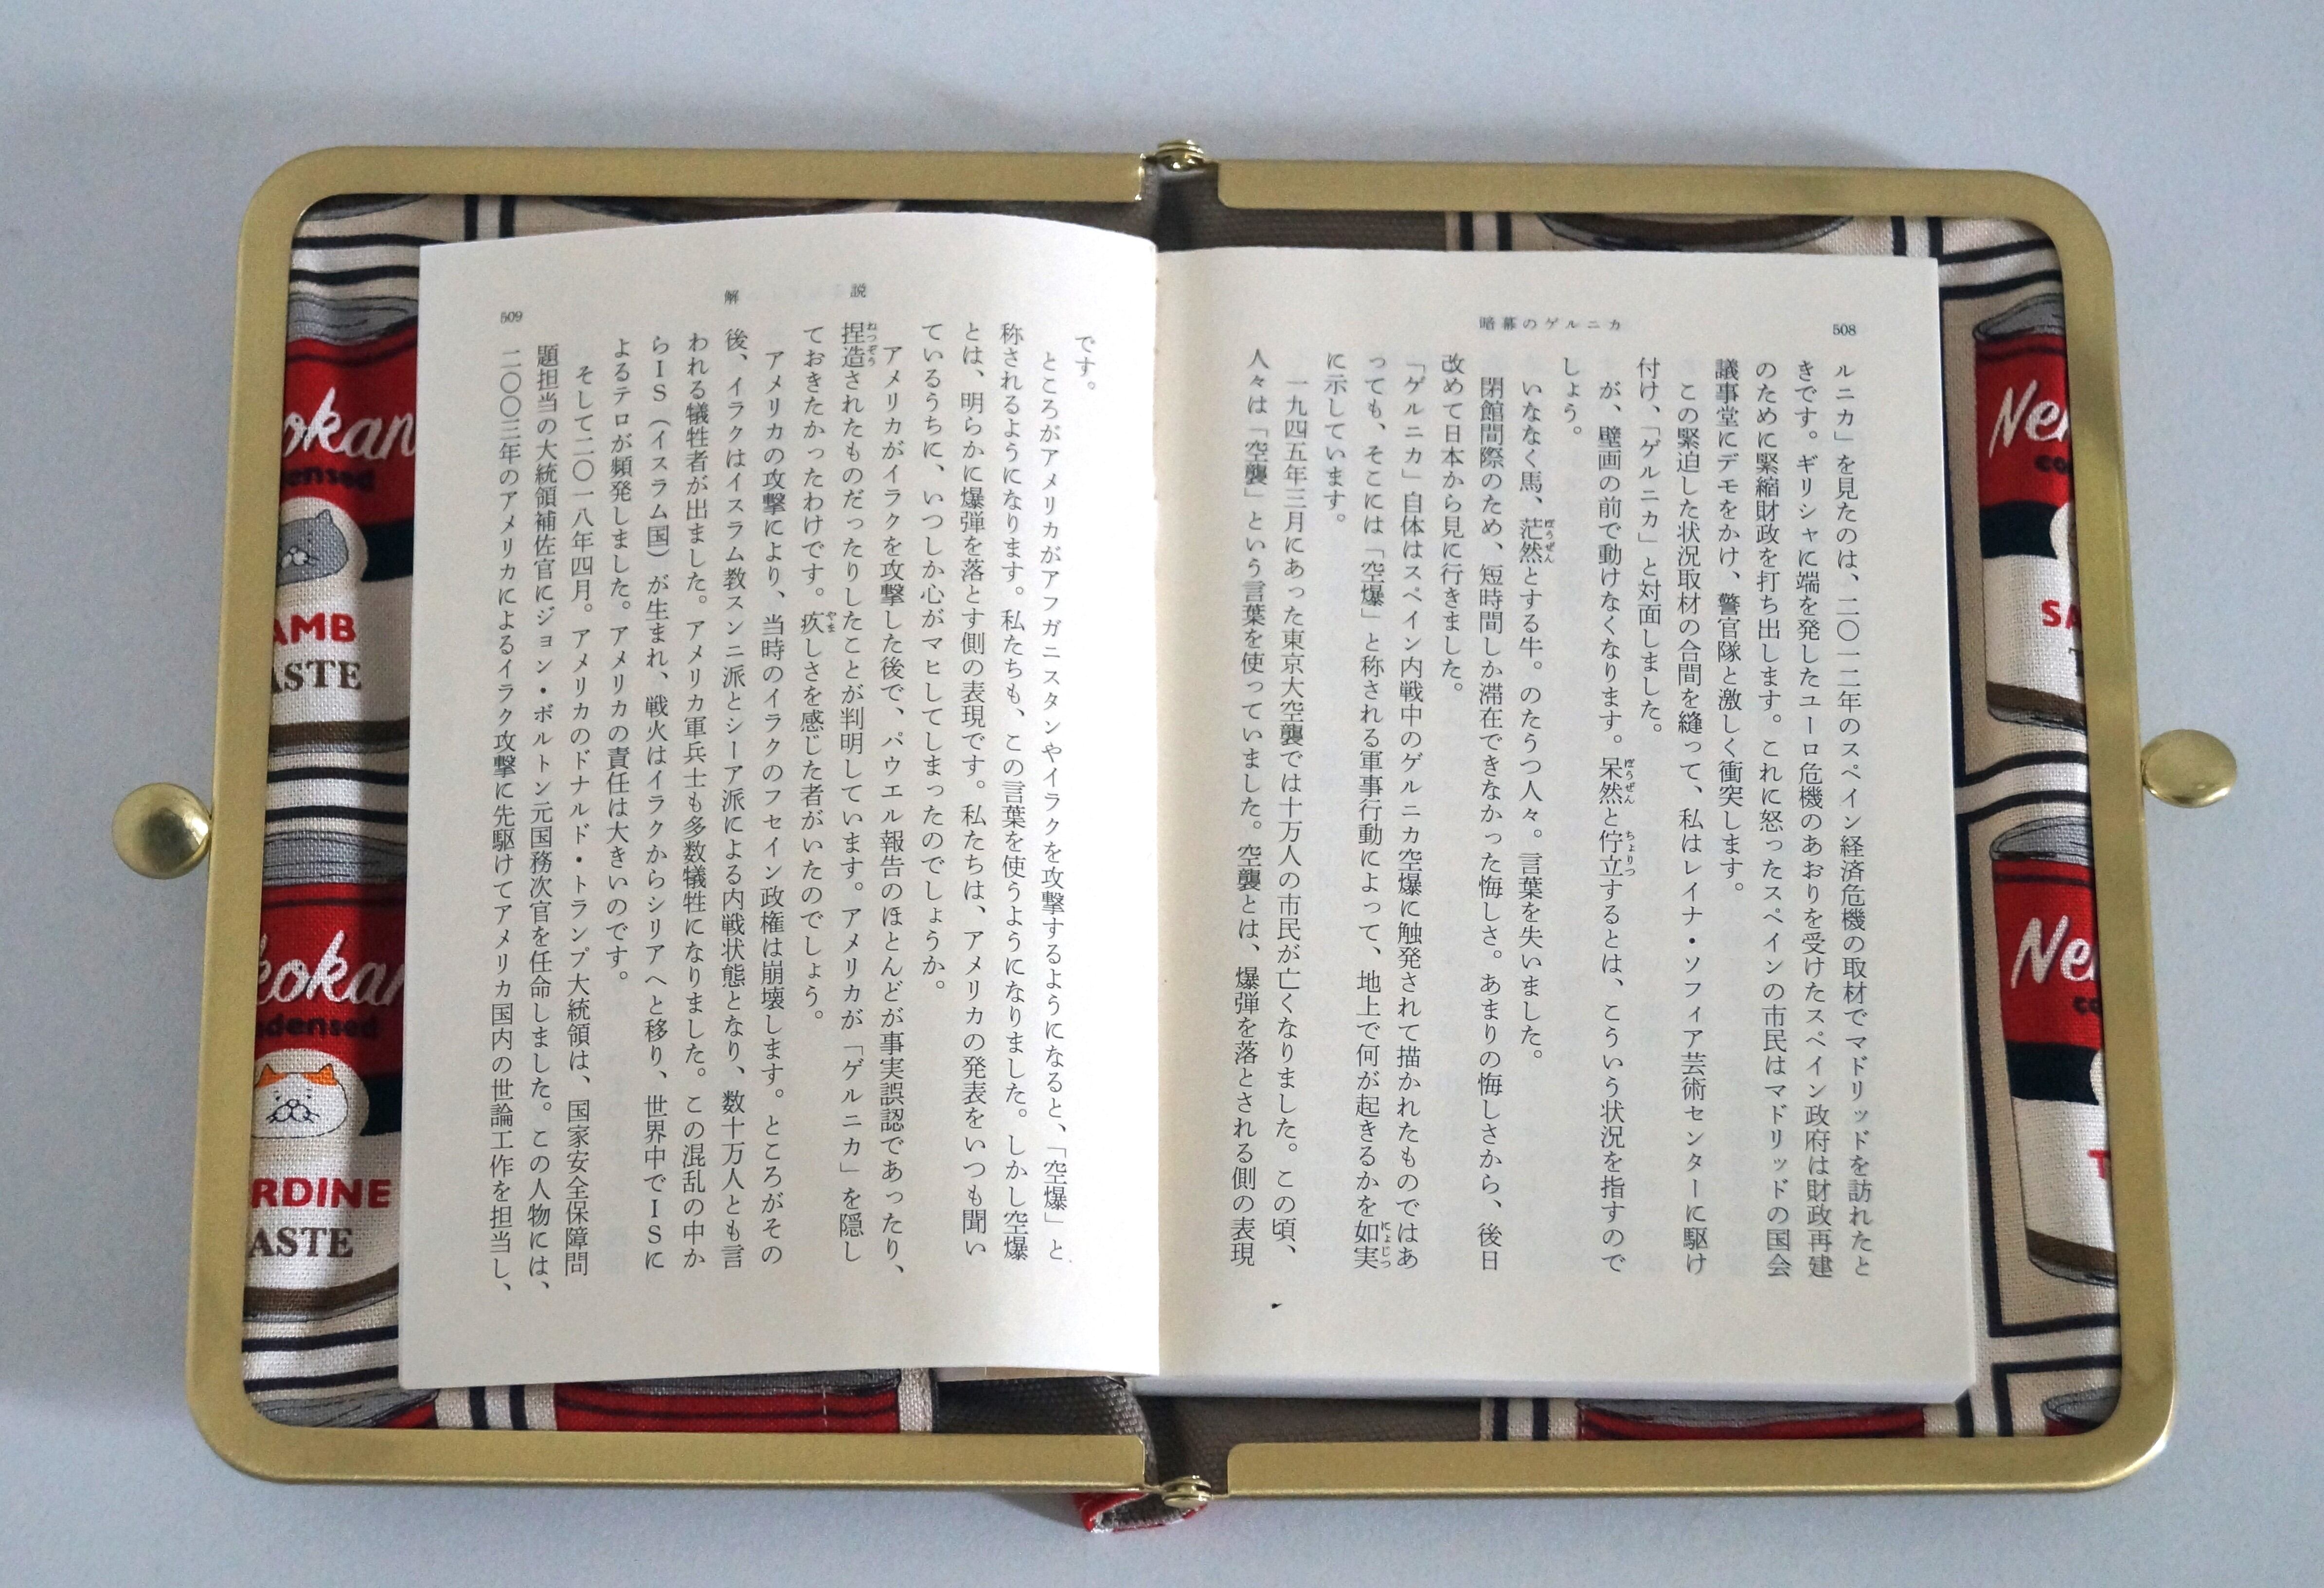 508
暗幕のゲルニカ
ルニカ」を見たのは、二〇一二年のスペイン経済危機の取材でマドリッドを訪れたと
きです。ギリシャに端を発したユーロ危機のあおりを受けたスペイン政府は財政再建
のために緊縮財政を打ち出します。これに怒ったスペインの市民はマドリッドの国会
議事堂にデモをかけ、警官隊と激しく衝突します。
この緊迫した状況取材の合間を縫って、私はレイナ・ソフィア芸術センターに駆け
付け、「ゲルニカ」と対面しました。
が、壁画の前で動けなくなります。呆然と佇立するとは、こういう状況を指すので
しょう。
いななく馬、茫然とする牛。のたうつ人々。言葉を失いました。
閉館間際のため、短時間しか滞在できなかった悔しさ。あまりの悔しさから、後日
改めて日本から見に行きました。
「ゲルニカ」自体はスペイン内戦中のゲルニカ空爆に触発されて描かれたものではあ
っても、そこには「空爆」と称される軍事行動によって、地上で何が起きるかを如実
に示しています。
一九四五年三月にあった東京大空襲では十万人の市民が亡くなりました。この頃、
人々は「空襲」という言葉を使っていました。空襲とは、爆弾を落とされる側の表現
です。
ところがアメリカがアフガニスタンやイラクを攻撃するようになると、「空爆」と
称されるようになります。私たちも、この言葉を使うようになりました。しかし空爆
とは、明らかに爆弾を落とす側の表現です。私たちは、アメリカの発表をいつも聞い
ているうちに、いつしか心がマヒしてしまったのでしょうか。
アメリカがイラクを攻撃した後で、パウエル報告のほとんどが事実誤認であったり、
捏造されたものだったりしたことが判明しています。アメリカが「ゲルニカ」を隠し
ておきたかったわけです。疚しさを感じた者がいたのでしょう。
アメリカの攻撃により、当時のイラクのフセイン政権は崩壊します。ところがその
後、イラクはイスラム教スンニ派とシーア派による内戦状態となり、数十万人とも言
われる犠牲者が出ました。アメリカ軍兵士も多数犠牲になりました。この混乱の中か
らIS（イスラム国）が生まれ、戦火はイラクからシリアへと移り、世界中でISに
よるテロが頻発しました。アメリカの責任は大きいのです。
そして二〇一八年四月。アメリカのドナルド・トランプ大統領は、国家安全保障問
題担当の大統領補佐官にジョン・ボルトン元国務次官を任命しました。この人物には、
二〇〇三年のアメリカによるイラク攻撃に先駆けてアメリカ国内の世論工作を担当し、
解説
509
okan
ensed
AMB
ASTE
eokan
densed
RDINE
ASTE
Ne
co
SA
T
Ne
co
T